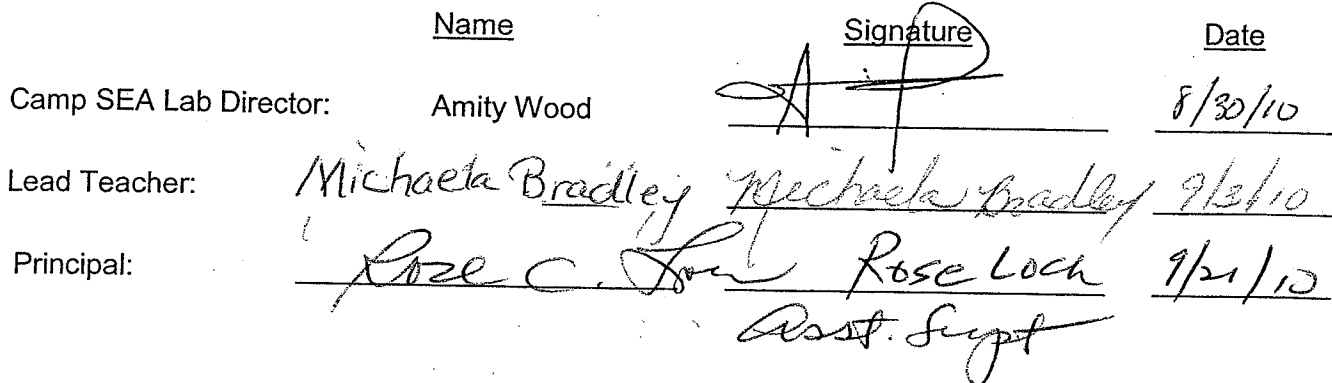 Name Signature Date
Camp SEA Lab Director: Amity Wood 8/30/10
Lead Teacher: Michaela Bradley Michaela Bradley 9/3/10
Principal: Rose C. Rose Loch 9/21/10
Asst. Supt